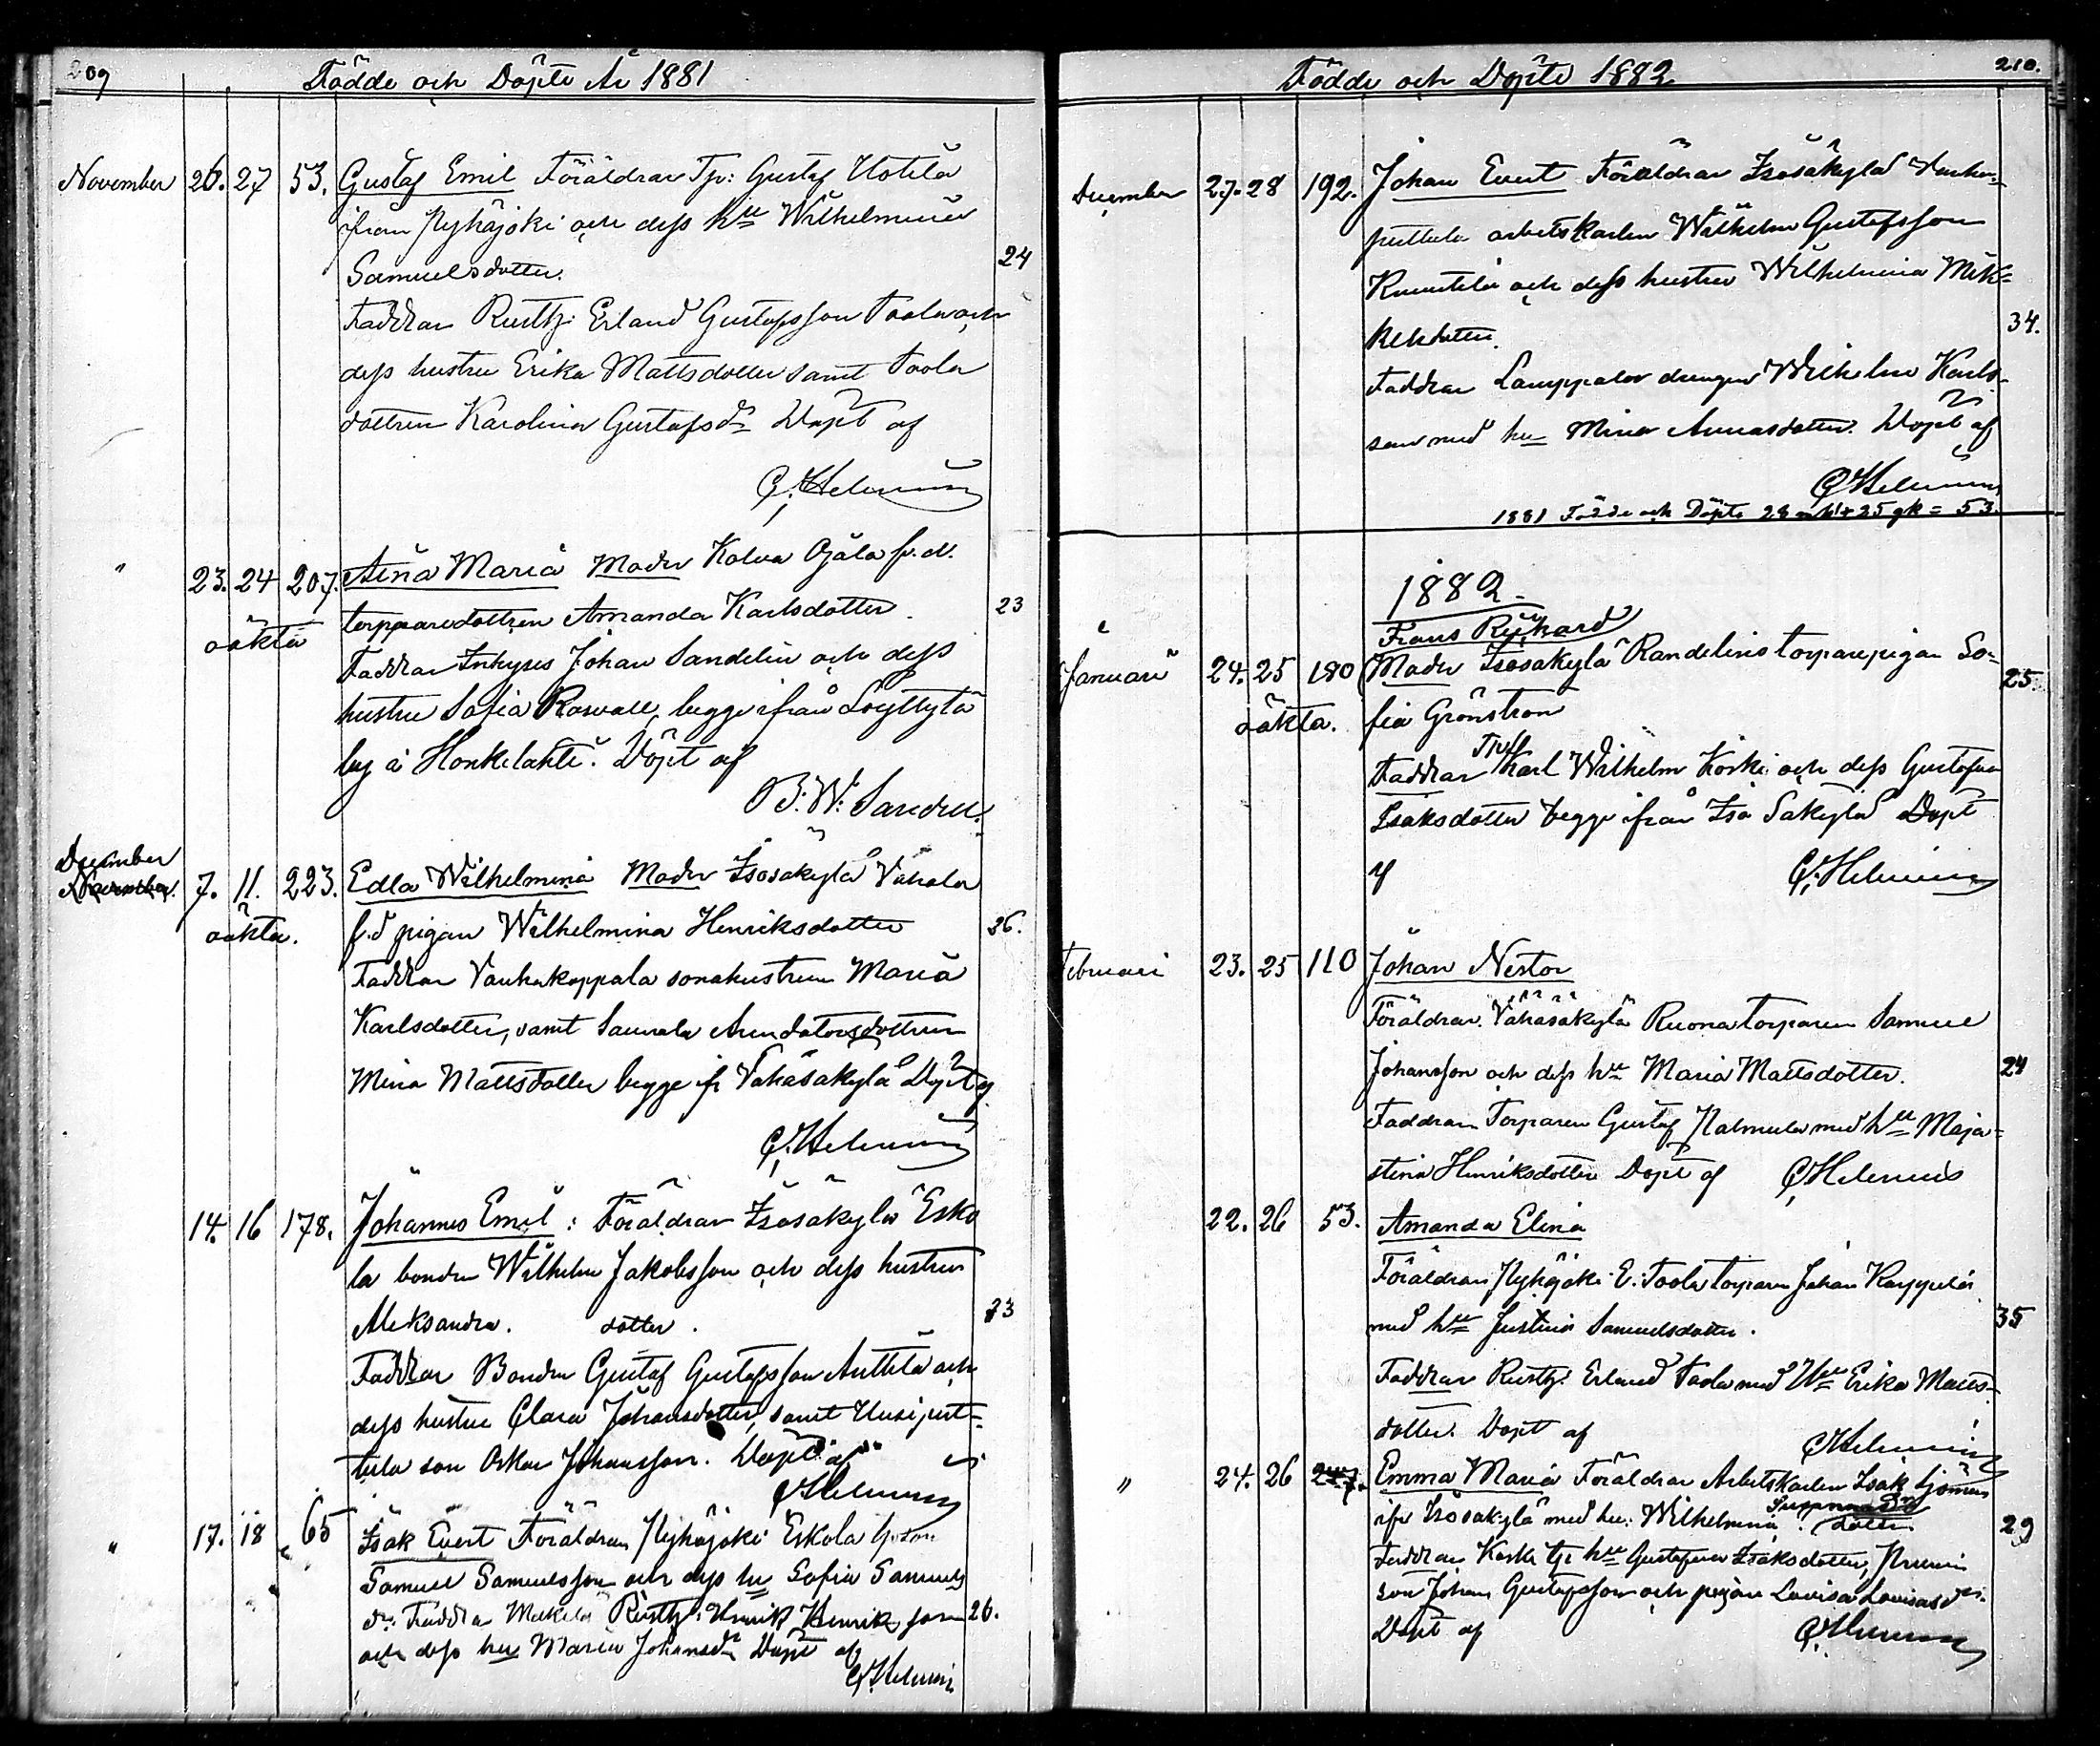 209
Födde och Döpte År 1881
November 26. 27 53. Gustaf Emil Föräldrar Tp: Gustaf Uotila
ifrån Pyhäjoki och dess hu Wilhelmina
Samuelsdotter. 24
Faddrar Rusth: Erland Gustafsson Toola och
dess hustru Erika Mattsdotter samt Toola
dottren Karolina Gustafsdr Döpt af
C. Helenius
" 23. 24 207. Aina Maria Moder Kolva Ojala f.d.
oäkta torpparedottren Amanda Karlsdotter. 23
Faddrar Inhyses Johan Sandelin och dess
hustru Sofia Rosvall, begge ifrån Löyttylä
by i Honkilahti. Döpt af
B. W. Sandell.
December
November. 7. 11. 223. Edla Wilhelmina Moder Isosäkylä Vähala
oäkta. f.d pigan Wilhelmina Henriksdotter 26.
Faddrar Vanhakappala sonahustrun Maria
Karlsdotter, samt Saunala Arrendatorsdottren
Mina Mattsdotter begge ifr Vähäsäkylä Döpt af
C. Helenius
14. 16 178. Johannes Emil: Föräldrar Isosäkylä Esko
la bonden Wilhelm Jakobsson och dess hustru
Aleksandra. dotter. 23
Faddrar Bonden Gustaf Gustafsson Anttila och
dess hustru Clara Johansdotter, samt Uusipert-
tula son Oskar Johansson. Döpt af
C. Helenius
" 17. 18 65 Isak Evert Föräldrar Pyhäjoki Eskola
Samuel Samuelsson och dess hu Sofia Samuels
dr. Faddrar Mäkilä Rusth: Henrik Henriksson 26.
och dess hu Maria Johansdr Döpt af
C. Helenius
Födde och Döpte 1882
210.
December 27. 28 192. Johan Evert Föräldrar Isosäkylä Vanha-
puttula arbetskarlen Wilhelm Gustafsson
och dess hustru Wilhelmina Mik-
kelsdotter. 34.
Faddrar Lamppalov drengen Wilhelm Karls-
son med hu Mina Annasdotter. Döpt af
C Helenius
1881 Födde och Döpte 28 mk + 25 qk = 53
1882.
Frans Richard
Januari 24. 25 180 Moder Isosäkylä Randelins torparepigan So-
oäkta. fia Grönstron 25.
Faddrar Tp Karl Wilhelm Koski och dess Gustafva
Isaksdotter begge ifrån Iso Säkylä Döpt
af C. Helenius
Februari 23. 25 110 Johan Nestor
Föräldrar. Vähäsäkylä Ruona torparen Samuel
Johansson och dess hu Maria Mattsdotter. 24
Faddrar Torparen Gustaf Nalmula med hu Maja-
stina Henriksdotter Döpt af C Helenius
22. 26 53. Amanda Elina
Föräldrar Pyhäjoki E. Toola torparen Johan Karppila
med hu Justina Samuelsdotter. 35
Faddrar Rusth: Erland Toola med Hu Erika Matts-
dotter. Döpt af C Helenius
" 24. 26 247. Emma Maria Föräldrar Arbetskarlen Isak Sjöman
Susannadr
ifr Isosäkylä med hu: Wilhelmina dotter. 29
Faddrar Koski tp hu Gustafva Isaksdotter,
son Johan Gustafsson och pigan Lovisa Lovisasdr.
Döpt af C. Helenius